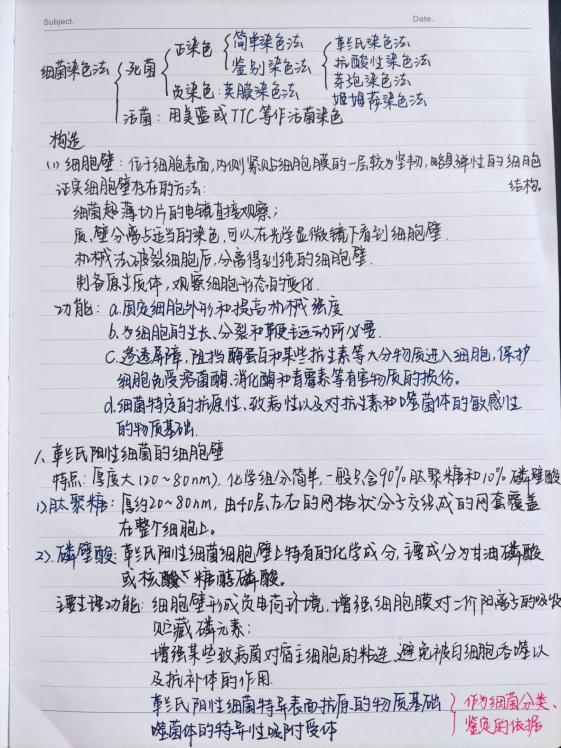 Subject.
Date.
细菌染色法
死菌
正染色
简单染色法
鉴别染色法
革兰氏染色法
抗酸性染色法
芽孢染色法
姬姆萨染色法
负染色:荚膜染色法
活菌:用美蓝或TTC等作活菌染色
构造
(1)细胞壁:位于细胞表面,内侧紧贴细胞膜的一层较为坚韧,略具弹性的细胞
结构。
证实细胞壁存在的方法:
细菌超薄切片的电镜直接观察;
质、壁分离与适当的染色,可以在光学显微镜下看到细胞壁.
机械法破裂细胞后,分离得到纯的细胞壁.
制备原生质体,观察细胞形态的变化.
功能:a.固定细胞外形和提高机械强度
b.为细胞的生长、分裂和鞭毛运动所必需.
c.渗透屏障,阻挡酶蛋白和某些抗生素等大分物质进入细胞,保护
细胞免受溶菌酶、消化酶和青霉素等有害物质的损伤。
d.细菌特定的抗原性、致病性以及对抗生素和噬菌体的敏感性
的物质基础.
1、革兰氏阳性细菌的细胞壁
特点:厚度大(20~80nm).化学组分简单,一般只含90%肽聚糖和10%磷壁酸
1).肽聚糖:厚约20~80nm,由40层左右的网格状分子交织成的网套覆盖
在整个细胞上。
2).磷壁酸:革兰氏阳性细菌细胞壁上特有的化学成分,主要成分为甘油磷酸
或核糖醇磷酸。
主要生理功能:细胞壁形成负电荷环境,增强细胞膜对二价阳离子的吸收
贮藏磷元素;
增强某些致病菌对宿主细胞的粘连、避免被白细胞吞噬以
及抗补体的作用.
革兰氏阳性细菌特异表面抗原的物质基础
噬菌体的特异性吸附受体
作为细菌分类、
鉴定的依据